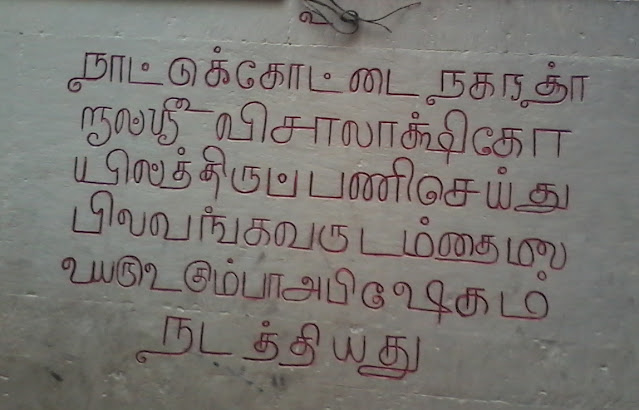 உ
நாட்டுக்கோட்டை நகரத்தா
ரால்ஸ்ரீ விசாலாக்ஷிகோ
யில்த்திருப்பணிசெய்து
பிலவங்கவருடம்தை௴
௨௰௫௳ கும்பாஅபிஷேகம்
நடத்தியது